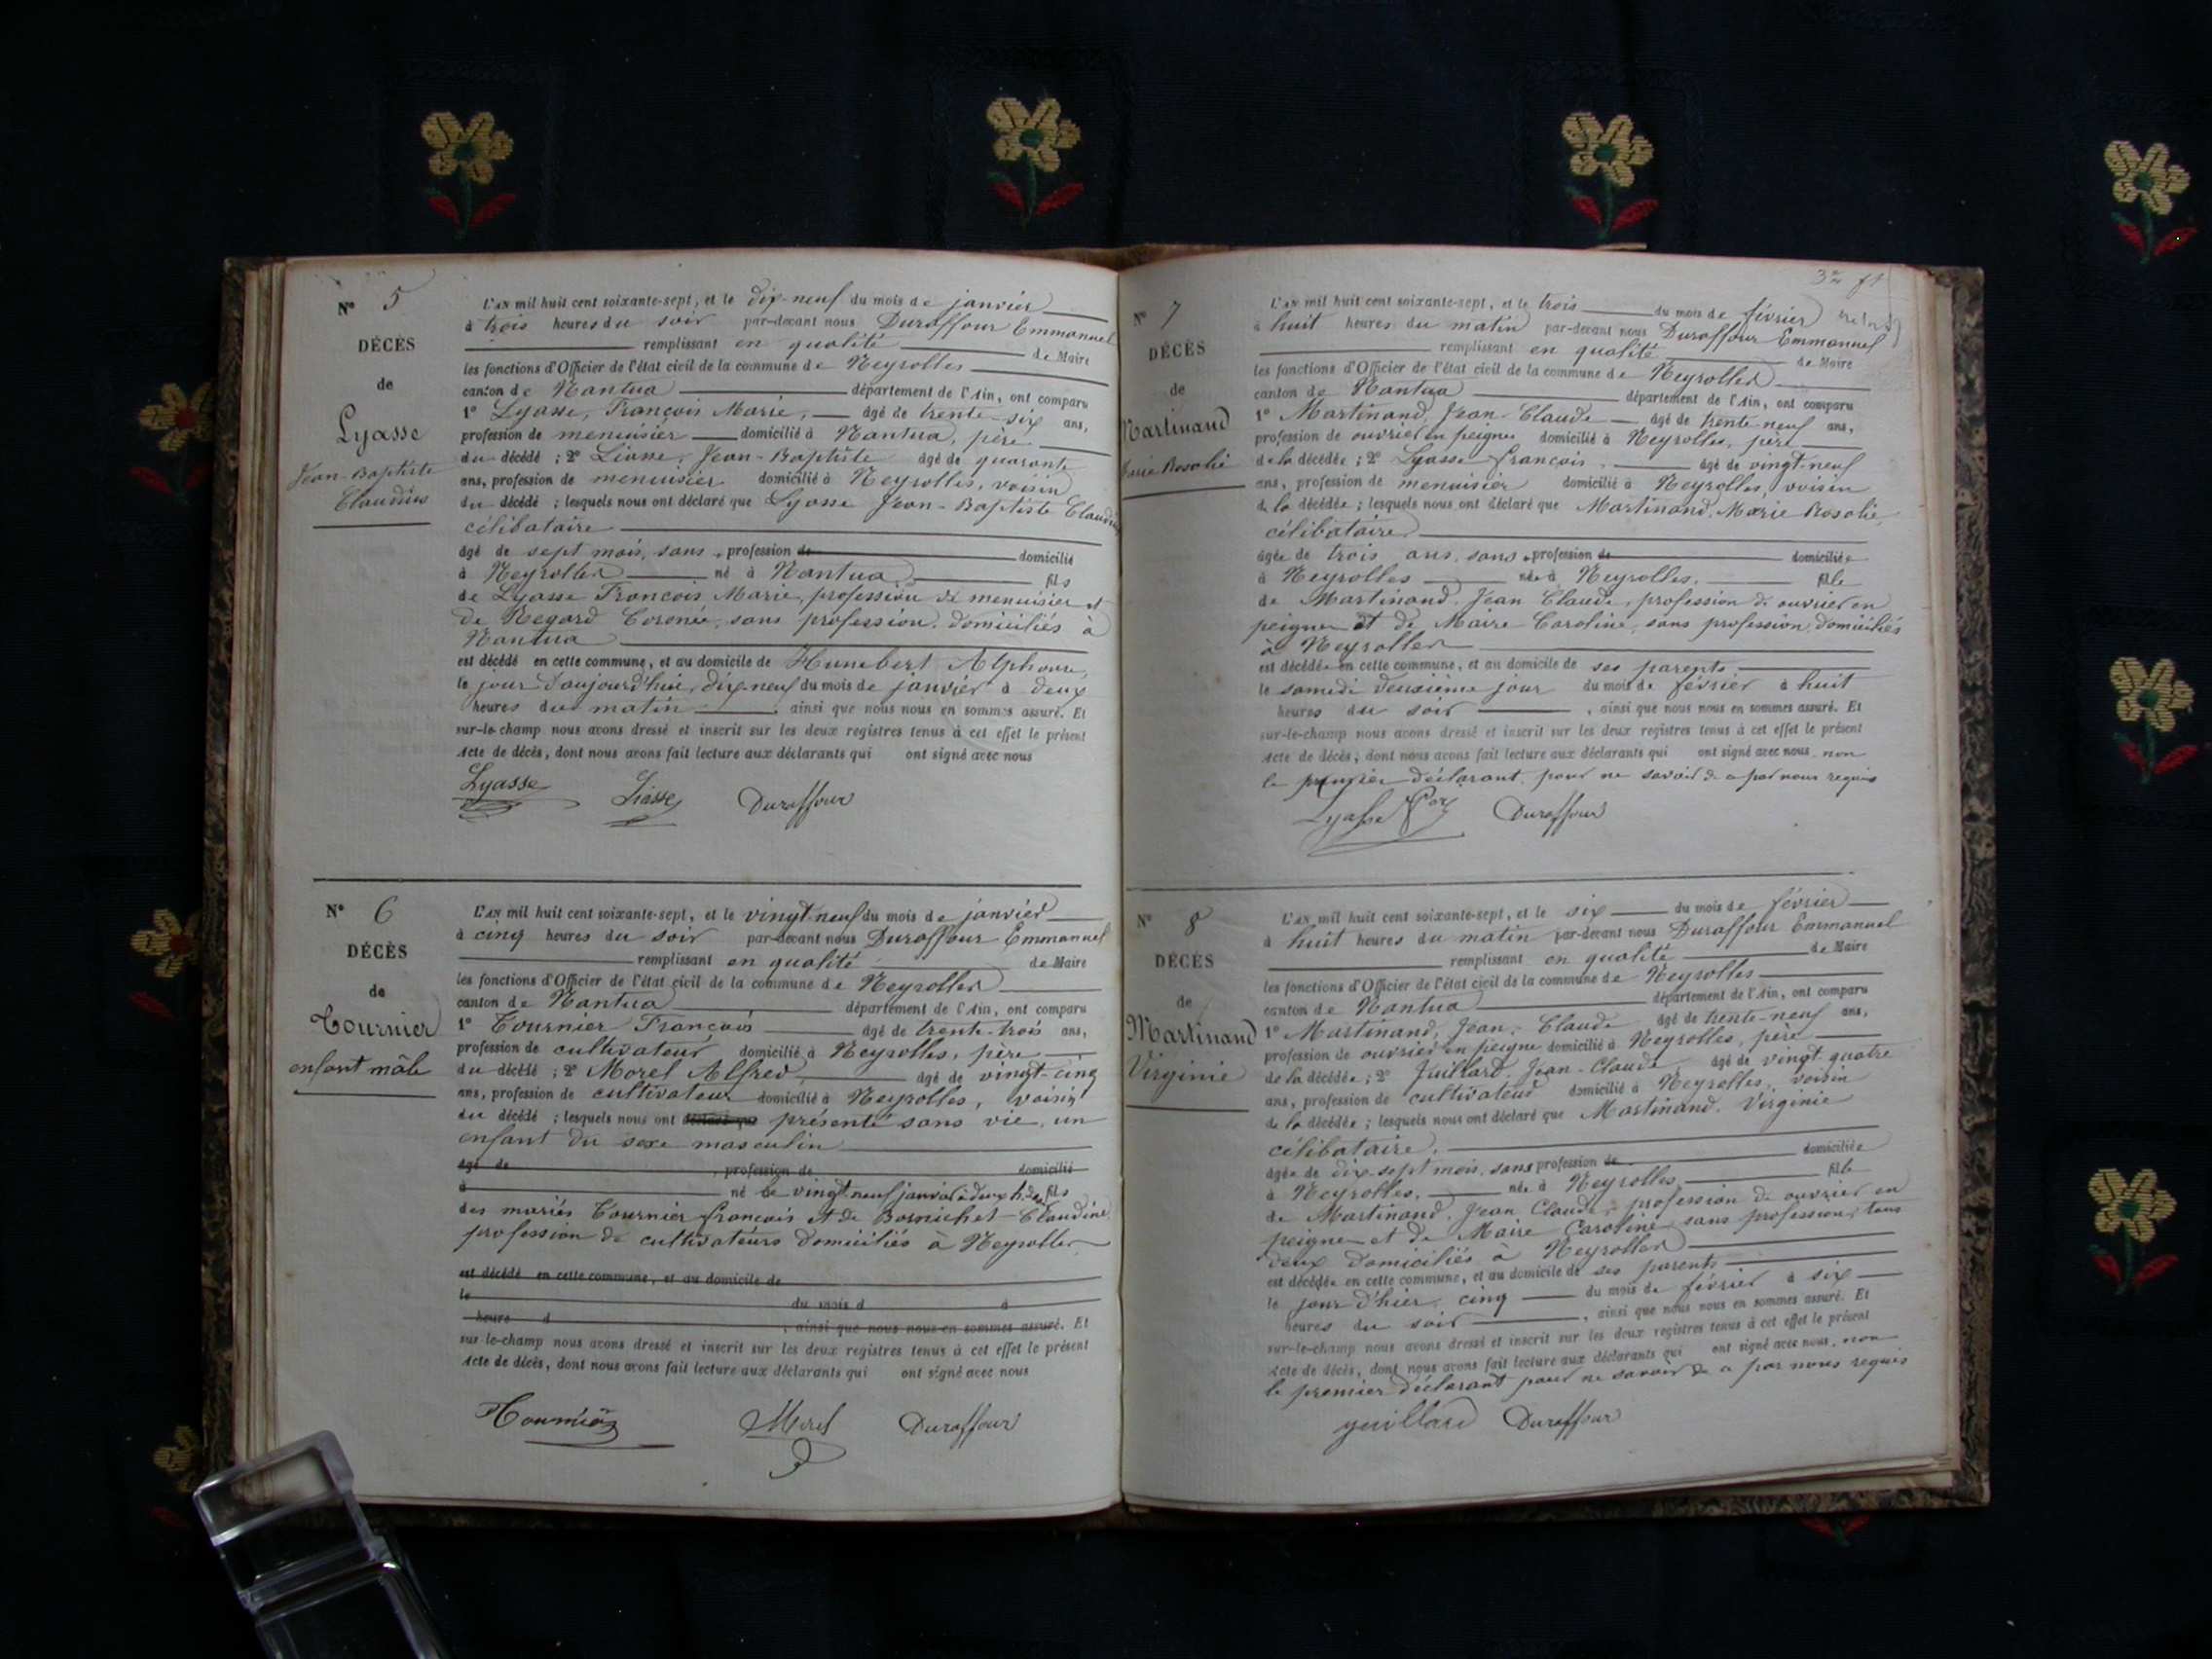 N° 5
DÉCÈS
de
Lyasse
Jean-Baptiste
Claudius
L'AN mil huit cent soixante-sept, et le dix-neuf du mois de janvier
à trois heures du soir par-devant nous Duraffour Emmanuel
remplissant en qualité de Maire
les fonctions d'Officier de l'état civil de la commune de Neyrolles
canton de Nantua département de l'Ain, ont comparu
1° Lyasse, François Marie, âgé de trente-six ans,
profession de menuisier domicilié à Nantua, père
du décédé ; 2° Liasse, Jean-Baptiste âgé de quarante
ans, profession de menuisier domicilié à Neyrolles, voisin
du décédé ; lesquels nous ont déclaré que Lyasse Jean-Baptiste Claudius
célibataire
âgé de sept mois, sans profession de domicilié
à Neyrolles né à Nantua, fils
de Lyasse François Marie, profession de menuisier et
de Regard Coronée, sans profession, domiciliés à
Nantua
est décédé en cette commune, et au domicile de Humbert Alphonse,
le jour d'aujourd'hui, dix-neuf du mois de janvier à deux
heures du matin , ainsi que nous nous en sommes assuré. Et
sur-le-champ nous avons dressé et inscrit sur les deux registres tenus à cet effet le présent
acte de décès, dont nous avons fait lecture aux déclarants qui ont signé avec nous
Lyasse Liasse Duraffour
N° 6
DÉCÈS
de
Tournier
enfant mâle
L'AN mil huit cent soixante-sept, et le vingt-neuf du mois de janvier
à cinq heures du soir par-devant nous Duraffour Emmanuel
remplissant en qualité de Maire
les fonctions d'Officier de l'état civil de la commune de Neyrolles
canton de Nantua département de l'Ain, ont comparu
1° Tournier François âgé de trente-trois ans,
profession de cultivateur domicilié à Neyrolles, père
du décédé ; 2° Morel Alfred, âgé de vingt-cinq
ans, profession de cultivateur domicilié à Neyrolles, voisin
du décédé ; lesquels nous ont déclaré que présenté sans vie, un
enfant du sexe masculin
âgé de , profession de domicilié
à né le vingt-neuf janvier à deux h. du fils
des mariés Tournier François et de Bornichet Claudine
profession de cultivateurs domiciliés à Neyrolles
est décédé en cette commune, et au domicile de
le du mois d à
heure d , ainsi que nous nous en sommes assuré. Et
sur-le-champ nous avons dressé et inscrit sur les deux registres tenus à cet effet le présent
acte de décès, dont nous avons fait lecture aux déclarants qui ont signé avec nous
Tournier Morel Duraffour
N° 7
DÉCÈS
de
Martinand
Marie Rosalie
L'AN mil huit cent soixante-sept, et le trois du mois de février
à huit heures du matin par-devant nous Duraffour Emmanuel
remplissant en qualité de Maire
les fonctions d'Officier de l'état civil de la commune de Neyrolles
canton de Nantua département de l'Ain, ont comparu
1° Martinand, Jean-Claude âgé de trente-neuf ans,
profession de ouvrier en peignes domicilié à Neyrolles, père
de la décédée ; 2° Lyasse François, âgé de vingt-neuf
ans, profession de menuisier domicilié à Neyrolles, voisin
de la décédée ; lesquels nous ont déclaré que Martinand, Marie Rosalie,
célibataire,
âgée de trois ans, sans profession de domiciliée
à Neyrolles née à Neyrolles, fille
de Martinand, Jean Claude, profession de ouvrier en
peignes et de Maire Caroline, sans profession, domiciliés
à Neyrolles
est décédée en cette commune, et au domicile de ses parents
le samedi deuxième jour du mois de février à huit
heures du soir , ainsi que nous nous en sommes assuré. Et
sur-le-champ nous avons dressé et inscrit sur les deux registres tenus à cet effet le présent
acte de décès, dont nous avons fait lecture aux déclarants qui ont signé avec nous, non
le premier déclarant, pour ne savoir de ce par nous requis
Lyasse Duraffour
N° 8
DÉCÈS
de
Martinand
Virginie
L'AN mil huit cent soixante-sept, et le six du mois de février
à huit heures du matin par-devant nous Duraffour Emmanuel
remplissant en qualité de Maire
les fonctions d'Officier de l'état civil de la commune de Neyrolles
canton de Nantua département de l'Ain, ont comparu
1° Martinand, Jean-Claude âgé de trente-neuf ans,
profession de ouvrier en peigne domicilié à Neyrolles, père
de la décédée ; 2° Juillard, Jean-Claude, âgé de vingt quatre
ans, profession de cultivateur domicilié à Neyrolles, voisin
de la décédée ; lesquels nous ont déclaré que Martinand, Virginie
célibataire,
âgée de dix sept mois, sans profession de domiciliée
à Neyrolles, née à Neyrolles, fille
de Martinand, Jean Claude, profession de ouvrier en
peignes et de Maire Caroline sans profession, tous
deux domiciliés à Neyrolles
est décédée en cette commune, et au domicile de ses parents
le jour d'hier, cinq du mois de février à six
heures du soir , ainsi que nous nous en sommes assuré. Et
sur-le-champ nous avons dressé et inscrit sur les deux registres tenus à cet effet le présent
acte de décès, dont nous avons fait lecture aux déclarants qui ont signé avec nous, non
le premier déclarant pour ne savoir de ce par nous requis
Juillard Duraffour